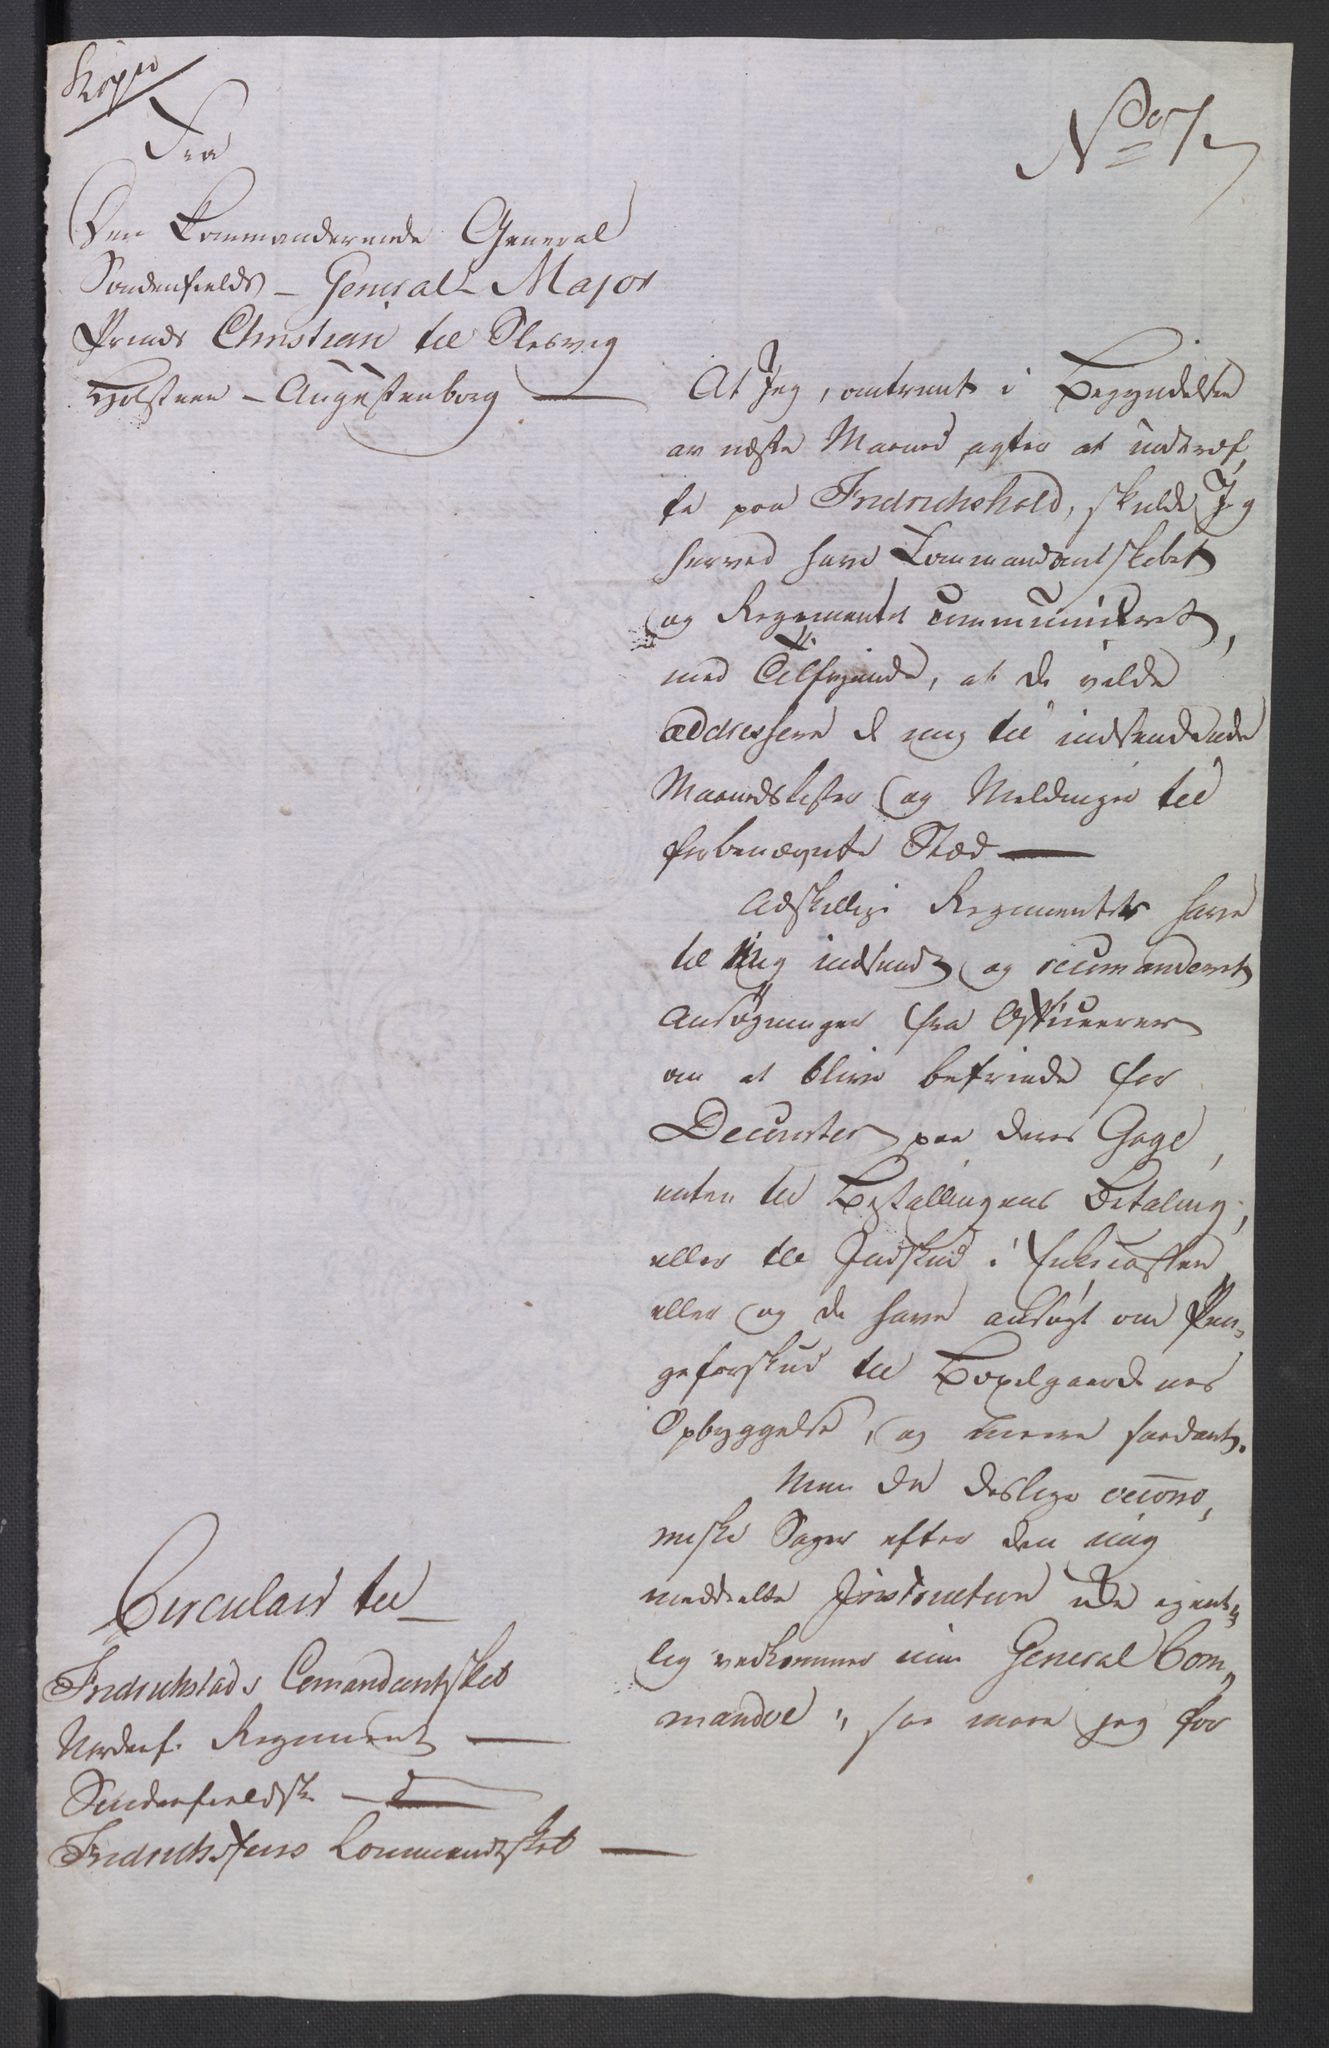 Kopie
No 7
Fra
Den Kommanderende General
Søndenfields – General-Major
Prinds Christian til Slesvig
Holsteen – Augustenborg —
At Jeg, omtrent i Begyndelsen
av næste Maaned agter at indtræf,
fe paa Fredrichshold, skulde Jeg
herved have Kommandantskabet
og Regementet communiceret,
med Tilføiende, at de vilde
addressere de mig til indsendende
Maanedslister og Meldinger til
forbenævnte Stæd —
Adskillige Regimenter have
til Mig indsendt og recomanderet
Ansøgninger fra Officeerer
om at blive befriede for
Decourter paa deres Gage,
enten til Bestallingens Betaling,
eller til Indskud i Enkecassen
eller og de have ansøgt om Pen,
geforskud til Boepelgaardenes
Opbyggelse, og mere saadant.
Men da deslige oecono,
miske Sager efter den mig
meddeelte Instruction ikke egent,
lig vedkommer min General Com,
mandoe, saa maae jeg for
Circulair til
Fredrichstads Comandantskab
Nordenf. Regiment —
Søndenfieldsk — d —
Fredrichsteens Commandtskab —